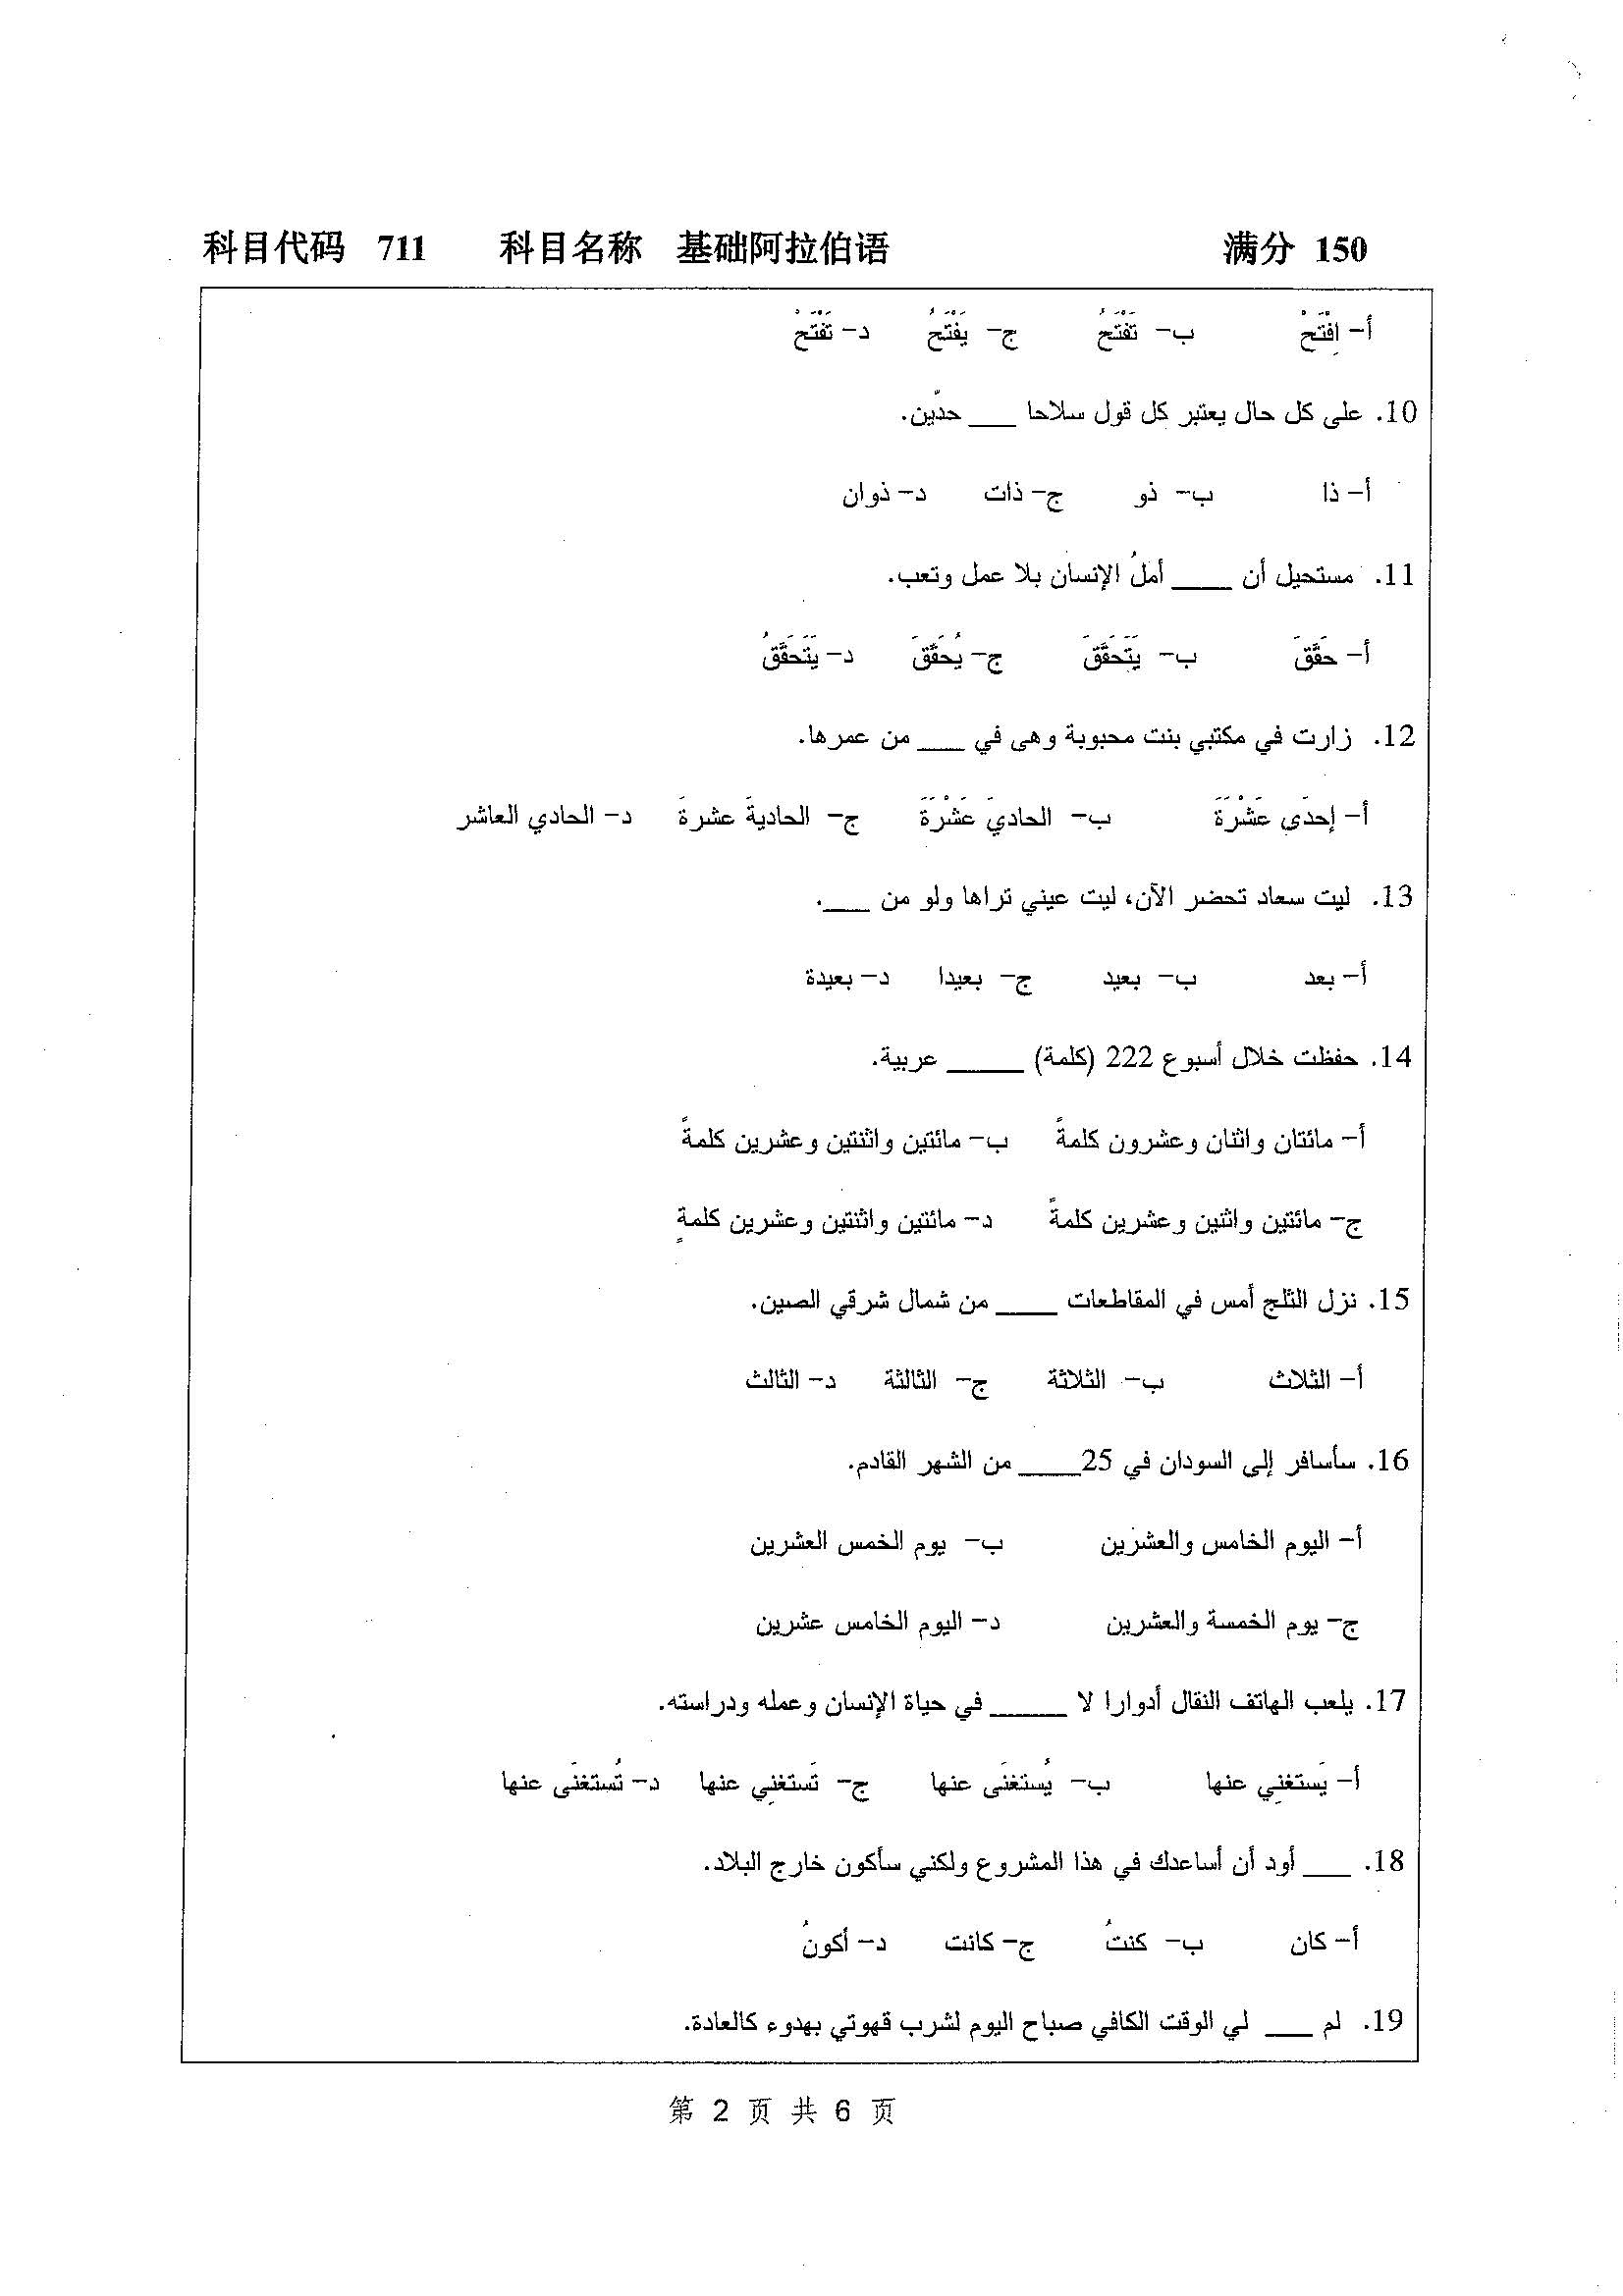 科目代码 711 科目名称 基础阿拉伯语 满分 150
أ– اِفْتَحْ ب– تَفْتَحُ ج– يَفْتَحُ د– تَفْتَحْ
10. على كل حال يعتبر كل قول سلاحا ____ حدّين.
أ– ذا ب– ذو ج– ذات د– ذوان
11. مستحيل أن ____ أملُ الإنسان بلا عمل وتعب.
أ– حَقَّقَ ب– يَتَحَقَّقَ ج– يُحَقَّقَ د– يَتَحَقَّقُ
12. زارت في مكتبي بنت محبوبة وهى في ____ من عمرها.
أ– إحدَى عَشْرَةَ ب– الحاديَ عَشْرَةَ ج– الحاديةَ عشرةَ د– الحادي العاشر
13. ليت سعاد تحضر الآن، ليت عيني تراها ولو من ____.
أ– بعد ب– بعيد ج– بعيدا د– بعيدة
14. حفظت خلال أسبوع 222 (كلمة) _____ عربية.
أ– مائتان واثنان وعشرون كلمةً ب– مائتين واثنتين وعشرين كلمةً
ج– مائتين واثنين وعشرين كلمةً د– مائتين واثنتين وعشرين كلمةٍ
15. نزل الثلج أمس في المقاطعات ____ من شمال شرقي الصين.
أ– الثلاث ب– الثلاثة ج– الثالثة د– الثالث
16. سأسافر إلى السودان في 25____ من الشهر القادم.
أ– اليوم الخامس والعشرين ب– يوم الخمس العشرين
ج– يوم الخمسة والعشرين د– اليوم الخامس عشرين
17. يلعب الهاتف النقال أدوارا لا _____ في حياة الإنسان وعمله ودراسته.
أ– يَستغنِي عنها ب– يُستغنَى عنها ج– تَستغنِي عنها د– تُستغنَى عنها
18. ____ أود أن أساعدك في هذا المشروع ولكني سأكون خارج البلاد.
أ– كان ب– كنتُ ج– كانت د– أكونُ
19. لم ____ لي الوقت الكافي صباح اليوم لشرب قهوتي بهدوء كالعادة.
第 2 页 共 6 页